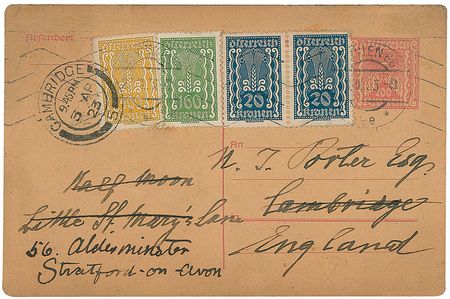 Absender:
österreich
österreich
160
kronen
österreich
20
kronen
österreich
20
kronen
CAMBRIDGE
9.45 PM
AP
23
An
N. T. Porter Esq.
Half Moon
Little St. Mary's lane
Cambridge
England
56. Aldesminster
Stratford-on-Avon